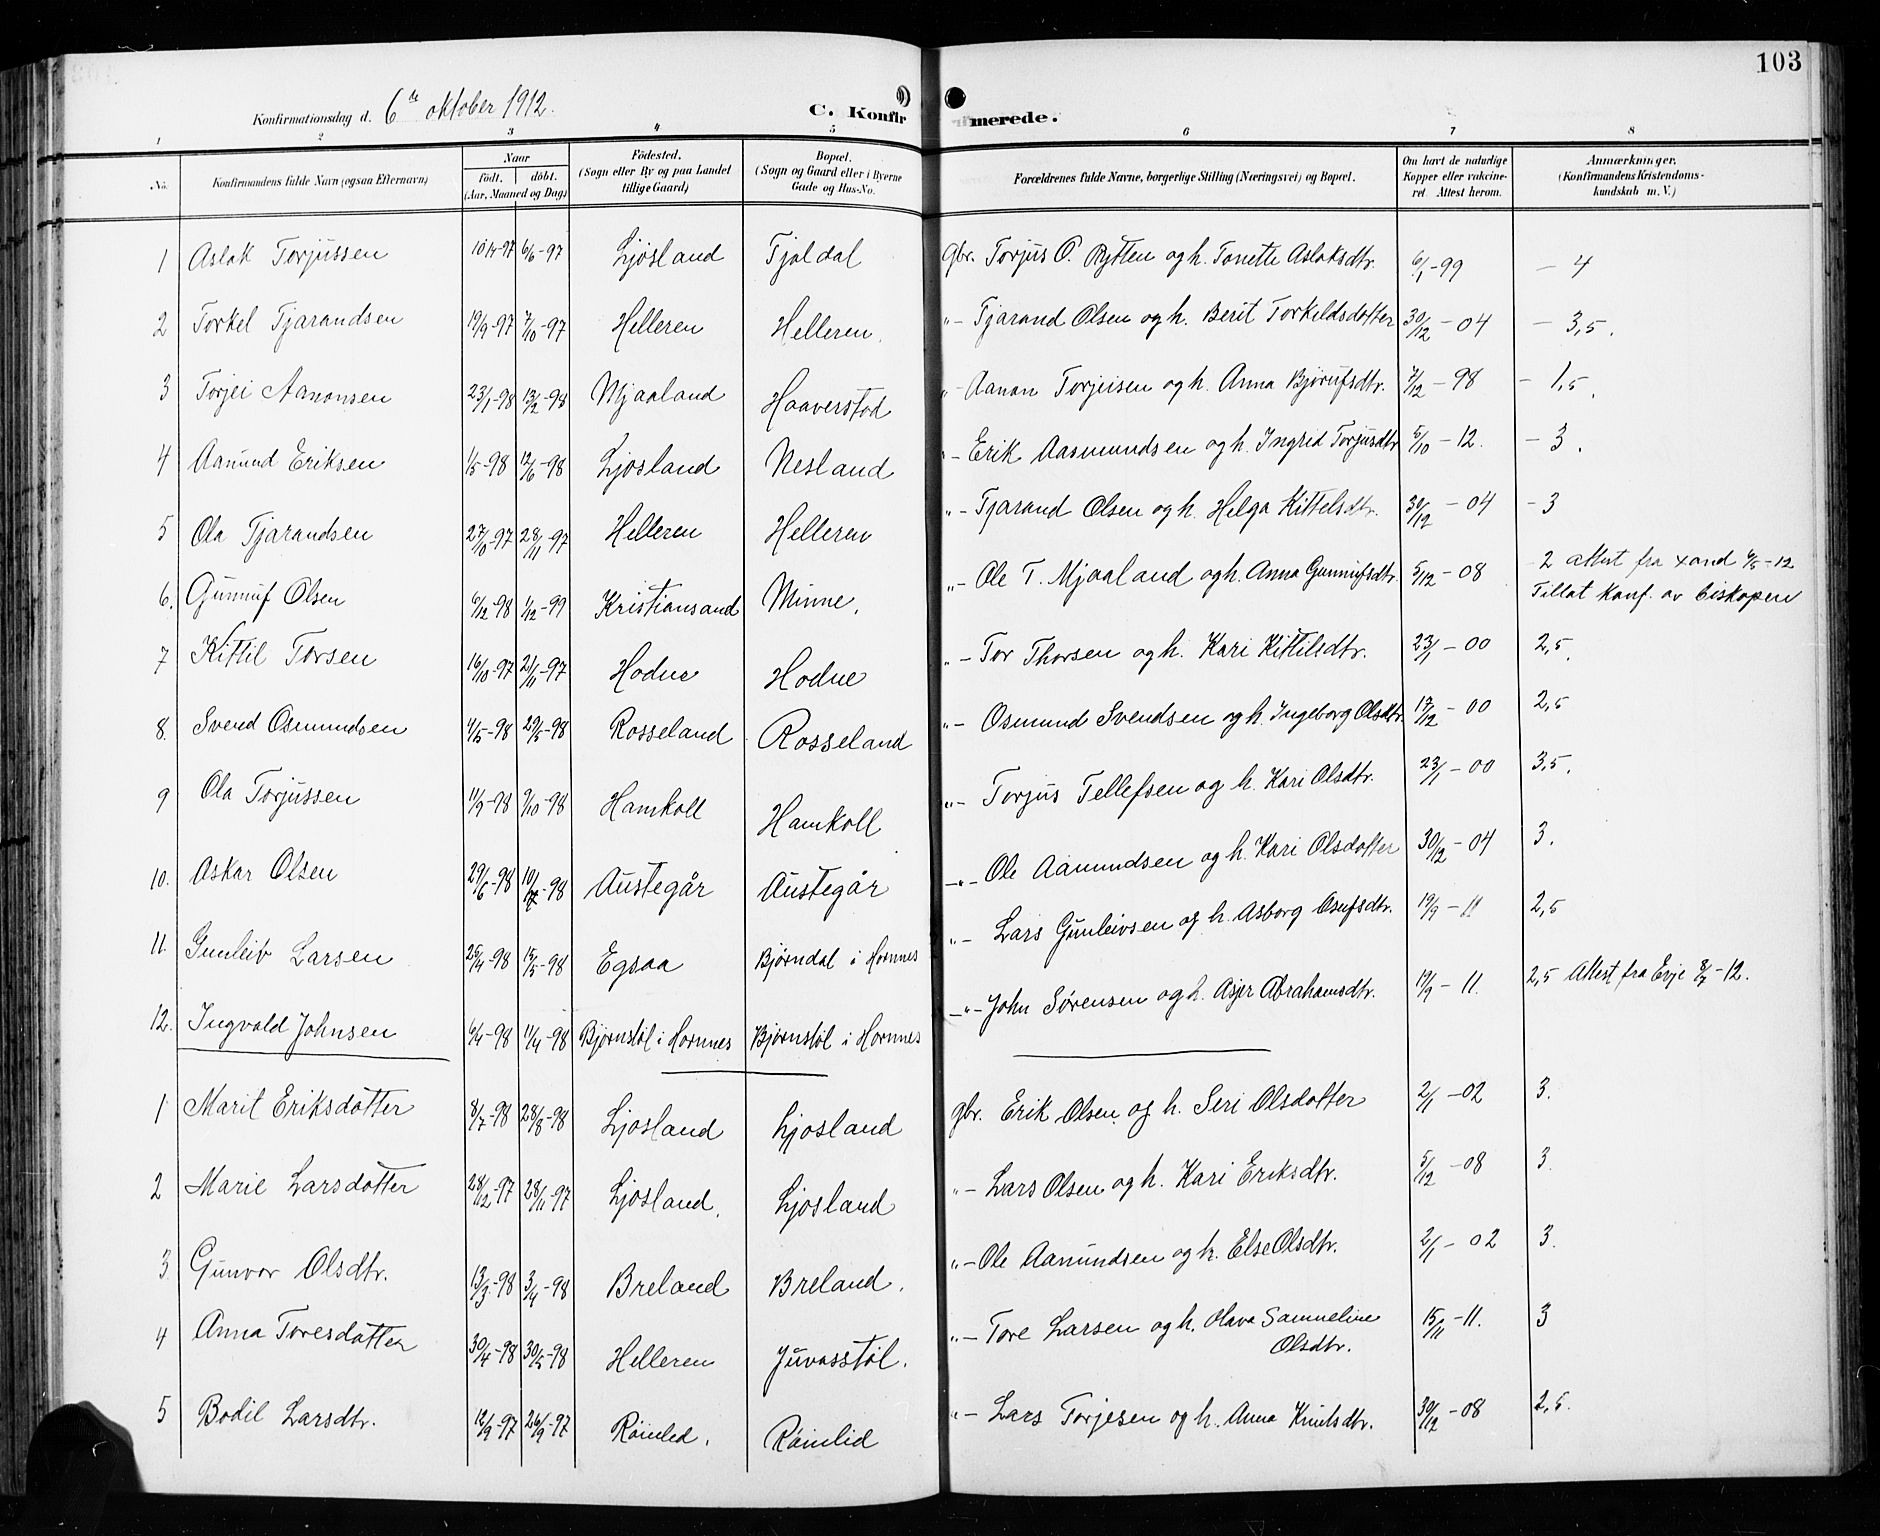 103
Konfirmationsdag d. 6te oktober 1912.
C. Konfirmerede.
1 2 3 4 5 6 7 8
No. Konfirmandens fulde Navn (ogsaa Efternavn) Naar født. døbt. (Aar, Maaned og Dag) Fødested. (Sogn eller By og paa Landet tillige Gaard) Bopæl. (Sogn og Gaard eller i Byerne Gade og Hus-No. Forældrenes fulde Navne, borgerlige Stilling (Næringsvei) og Bopæl. Om havt de naturlige Kopper eller vakcineret Attest herom. Anmærkninger. (Konfirmandens Kristendomskundskab m. V.)
1 Aslak Torjussen 10/4-97 6/6-97 Ljosland Tjaldal gbr. Torjus O. Rytten og h. Tonette Aslaksdtr. 6/1-99 - 4
2 Torkel Tjarandsen 19/9-97 7/10-97 Helleren Helleren. "- Tjarand Olsen og h. Berit Torkeldsdotter 30/12-04 - 3,5.
3 Torjei Aanonsen 23/1-98 13/2-98 Mjaaland Haaverstad "- Aanon Torjeisen og h. Anna Bjørufsdtr. 7/12-98 - 1,5.
4 Aamund Eriksen 1/5-98 12/6-98 Ljosland Nesland "- Erik Aasmundsen og h. Ingrid Torjusdtr 5/10-12. - 3.
5 Ola Tjarandsen 27/10-97 28/11-97 Helleren Helleren "- Tjarand Olsen og h. Helga Kittelsdtr. 30/12-04 - 3
6. Gunnuf Olsen 6/12-98 1/12-99 Kristiansand Minne. "- Ole T. Mjaaland og h. Anna Gunnufsdtr. 5/12-08 2 attest fra xand 6/5-12
Tillat konf. av biskopen
7 Kittil Torsen 16/10-97 21/11-97 Hodne Hodne "- Tor Thorsen og h. Kari Kittilsdtr. 23/1-00 2,5.
8. Svend Osmundsen 4/5-98 29/5-98 Rosseland Rosseland "- Osmund Svendsen og h. Ingeborg Olsdtr. 17/12-00 2,5
9 Ola Torjussen 11/9-98 9/10-98 Hamkoll Hamkoll "- Torjus Tellefsen og h. Kari Olsdtr. 23/1-00 3,5.
10. Askar Olsen 29/6-98 10/7-98 Austegår Austegår -"- Ole Aamundsen og h. Kari Olsdotter 30/12-04 3.
11. Gunleiv Larsen 25/4-98 15/5-98 Egsaa Bjørndal i Hornnes "- Lars Gunleivsen og h. Asborg Osufsdtr. 19/9-11 2,5
12. Ingvald Johnsen 6/4-98 11/4-98 Bjørnstøl i Hornnes Bjørnstøl i Hornnes -"- John Sørensen og h. Asjer Abrahamsdtr. 19/9-11. 2,5 Attest fra Evje 8/7-12.
1 Marit Eriksdotter 8/7-98 28/8-98 Ljosland Ljosland gbr. Erik Olsen og h. Seri Olsdotter 2/1-02 3.
2 Marie Larsdotter 28/12-97 28/11-97 Ljosland. Ljosland "- Lars Olsen og h. Kari Eriksdtr. 5/12-08 3.
3 Gunvor Olsdtr. 13/3-98 3/4-98 Breland Breland. "- Ole Aamundsen og h. Else Olsdtr. 2/1-02 3.
4 Anna Toresdotter 30/4-98 30/5-98 Helleren Juvasstøl. "- Tore Larsen og h. Olava Samueline Olsdtr. 15/11-11. 3
5 Bodil Larsdtr. 12/9-97 26/9-97 Røinled. Røinlid "- Lars Torjesen og h. Anna Knutsdtr. 30/12-08 2,5.